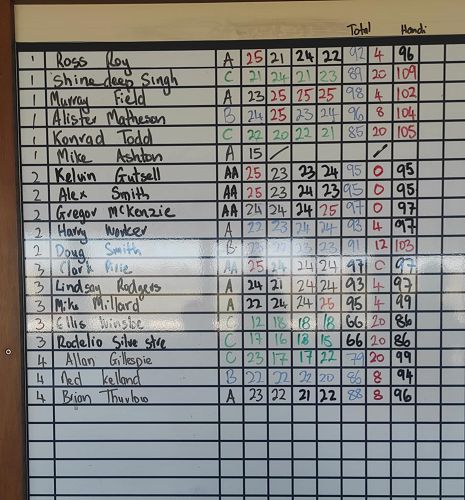 Total Handi
1 Ross Roy A 25 21 24 22 92 4 96
1 Shinedeep Singh C 21 24 21 23 89 20 109
1 Murray Field A 23 25 25 25 98 4 102
1 Alister Matheson B 24 25 23 24 96 8 104
1 Konrad Todd C 22 20 22 21 85 20 105
1 Mike Ashton A 15
2 Kelvin Gutsell AA 25 23 23 24 95 0 95
2 Alex Smith AA 25 23 24 23 95 0 95
2 Gregor McKenzie AA 24 24 24 25 97 0 97
2 Harry A 22 23 24 24 93 4 97
2 Doug Smith B 23 22 23 23 91 12 103
3 Clark AA 25 24 24 24 97 0 97
3 Lindsay Rodgers A 24 21 24 24 93 4 97
3 Mike Millard A 22 24 24 25 95 4 99
3 Ellis C 12 18 18 18 66 20 86
3 Rodelio Silvestre C 17 16 18 15 66 20 86
4 Allan Gillespie C 23 17 17 22 79 20 99
4 Ned Kelland B 22 22 22 20 86 8 94
4 Brian Thurlow A 23 22 21 22 88 8 96